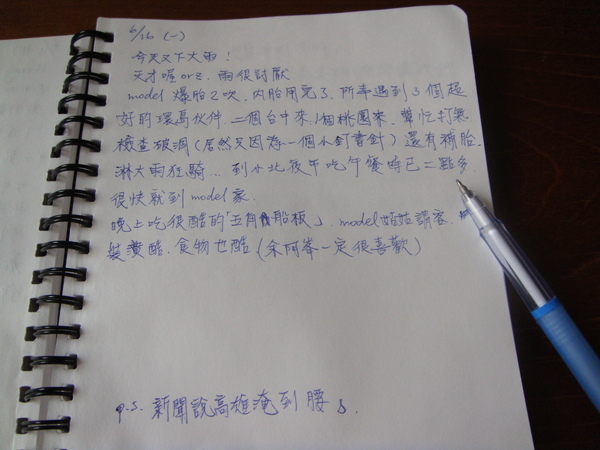 6/16 (一)
今天又下大雨!
天才喔orz. 雨很討厭
model 爆胎2次. 內胎用完了. 所幸遇到3個超
好的環島伙伴. 二個台中來 1個桃園來. 幫忙打氣
檢查破洞(居然又因為一個小釘書針) 還有補胎.
淋大雨狂騎... 到 北 午吃午餐時已二點多.
很快就到model家.
晚上吃很酷的「五角船板」. model姑姑請客.
裝潢酷. 食物也酷(余阿峯一定很喜歡)
p.s. 新聞說高雄淹到腰了.